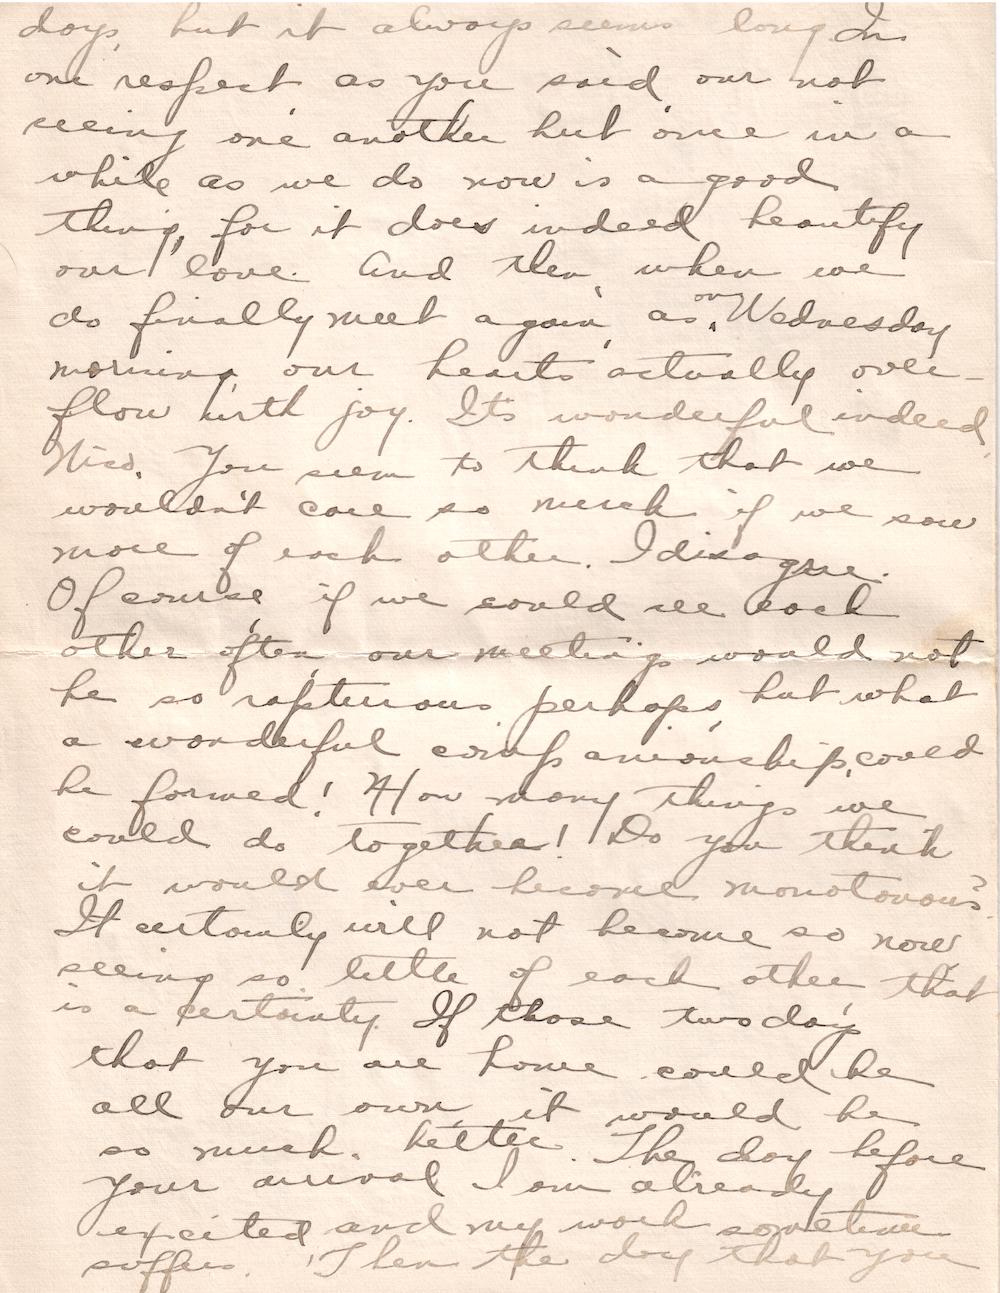 days, but it always seems long. In
one respect, as you said, our not
seeing one another but once in a
while as we do now is a good
thing, for it does indeed beautify
our love. And then, when we
do finally meet again, as on Wednesday
morning, our hearts actually over-
flow with joy. It's wonderful indeed,
You seem to think that we
wouldn't care so much if we saw
more of each other. I disagree.
Of course, if we could see each
other often, our meetings would not
be so rapturous perhaps, but what
a wonderful companionship could
be formed! How many things we
could do together! Do you think
it would ever become monotonous?
It certainly will not become so now
seeing so little of each other that
is a certainty. If those two day
that you are home could be
all our own, it would be
so much better. The day before
your arrival I am already
excited and my work sometime
suffers. Then the day that you